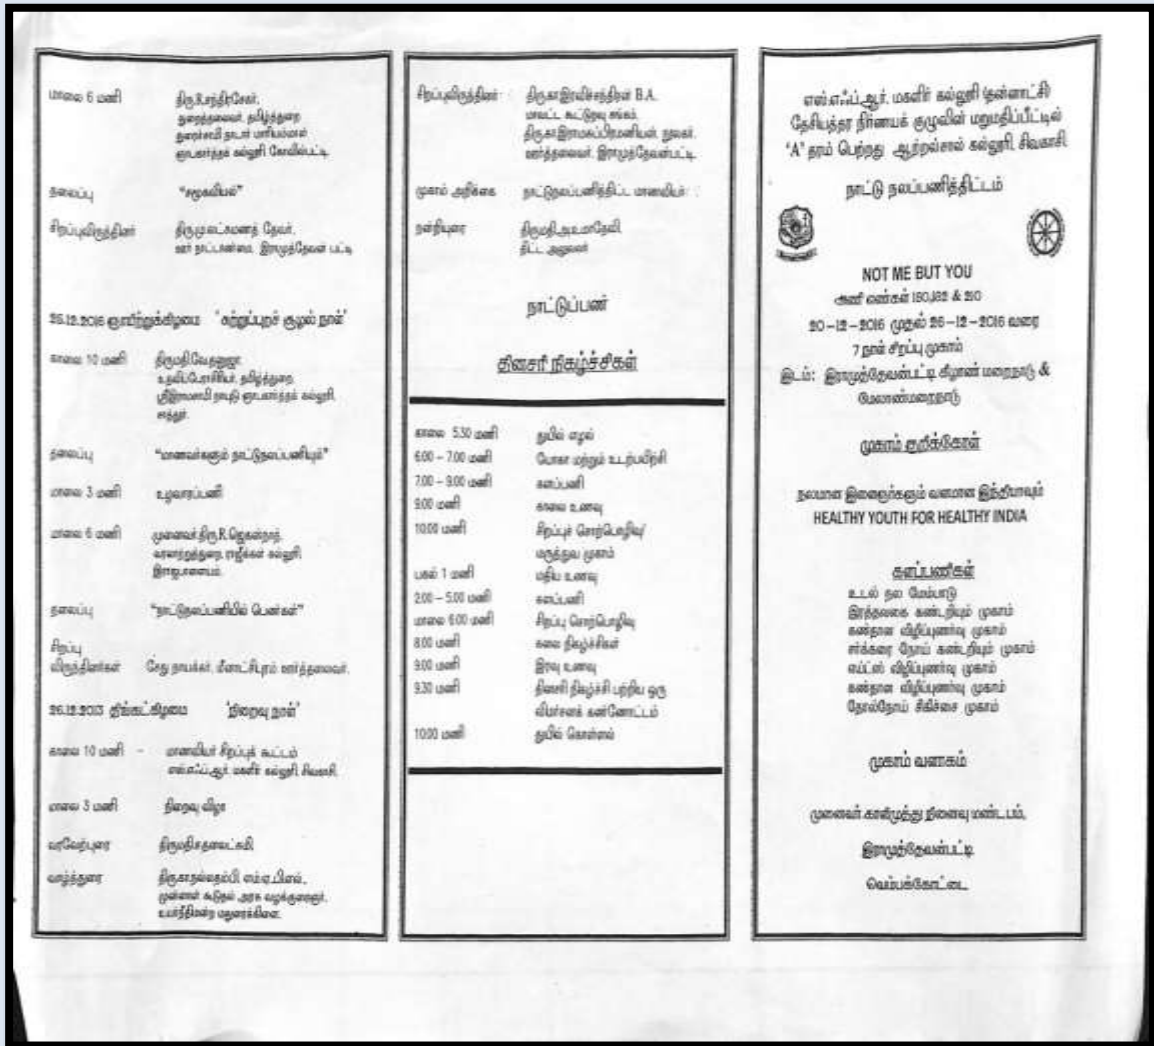 மாலை 6 மணி திரு.R.சந்திரசேகர்,
துறைத்தலைவர், தமிழ்த்துறை
துரைச்சாமி நாடார் மாரியம்மாள்
ஞாபகார்த்தக் கல்லூரி கோவில்பட்டி.
தலைப்பு "சமூகவியல்"
சிறப்புவிருந்தினர் திரு.மு.லட்சுமணத் தேவர்,
ஊர் நாட்டாண்மை, இராமுத்தேவன் பட்டி
25.12.2016 ஞாயிற்றுக்கிழமை 'சுற்றுப்புறச் சூழல் நாள்'
காலை 10 மணி திருமதி.வே.தனுஜா,
உதவிப்பேராசிரியர், தமிழ்த்துறை,
ஸ்ரீஇராமசாமி நாயுடு ஞாபகார்த்தக் கல்லூரி,
சாத்தூர்.
தலைப்பு "மாணவர்களும் நாட்டுநலப்பணியும்"
மாலை 3 மணி உழவாரப்பணி
மாலை 6 மணி முனைவர்.திரு.R.ஜெகன்நாத்,
வரலாற்றுத்துறை, ராஜூக்கள் கல்லூரி,
இராஜபாளையம்.
தலைப்பு "நாட்டுநலப்பணியில் பெண்கள்"
சிறப்பு
விருந்தினர்கள் சேது நாயக்கர், மீனாட்சிபுரம் ஊர்த்தலைவர்.
26.12.2013 திங்கட்கிழமை 'நிறைவு நாள்'
காலை 10 மணி - மாணவியர் சிறப்புக் கூட்டம்
எஸ்.எஃப்.ஆர். மகளிர் கல்லூரி, சிவகாசி.
மாலை 3 மணி நிறைவு விழா
வரவேற்புரை
வாழ்த்துரை திரு.கா.நல்லதம்பி, எம்.ஏ.பி.எல்.,
முன்னாள் கூடுதல் அரசு வழக்குரைஞர்,
உயர்நீதிமன்ற மதுரைக்கிளை.
சிறப்புவிருந்தினர் : திரு.கா.இரவிச்சந்திரன் B.A.
மாவட்ட கூட்டுறவு சங்கம்.
திரு.கா.இராமசுப்பிரமணியன்,
ஊர்த்தலைவர், இராமுத்தேவன்பட்டி.
முகாம் அறிக்கை நாட்டுநலப்பணித்திட்ட மாணவியர்
நன்றியுரை திருமதி.அ.உமாதேவி,
திட்ட அலுவலர்
நாட்டுப்பண்
தினசரி நிகழ்ச்சிகள்
காலை 5.30 மணி துயில் எழல்
6.00 – 7.00 மணி யோகா மற்றும் உடற்பயிற்சி
7.00 – 9.00 மணி களப்பணி
9.00 மணி காலை உணவு
10.00 மணி சிறப்புச் சொற்பொழிவு/
மருத்துவ முகாம்
பகல் 1 மணி மதிய உணவு
2.00 – 5.00 மணி களப்பணி
மாலை 6.00 மணி சிறப்பு சொற்பொழிவு
8.00 மணி கலை நிகழ்ச்சிகள்
9.00 மணி இரவு உணவு
9.30 மணி தினசரி நிகழ்ச்சி பற்றிய ஒரு
விமர்சனக் கண்ணோட்டம்
10.00 மணி துயில் கொள்ளல்
எஸ்.எஃப்.ஆர். மகளிர் கல்லூரி (தன்னாட்சி)
தேசியத்தர நிர்ணயக் குழுவின் மறுமதிப்பீட்டில்
'A' தரம் பெற்றது ஆற்றல்சால் கல்லூரி, சிவகாசி.
நாட்டு நலப்பணித்திட்டம்
NOT ME BUT YOU
அணி எண்கள் 180,182 & 210
20–12–2016 முதல் 26–12–2016 வரை
7 நாள் சிறப்பு முகாம்
இடம்: இராமுத்தேவன்பட்டி கீழாண் மறைநாடு &
மேலாண்மறைநாடு
முகாம் குறிக்கோள்
நலமான இளைஞர்களும் வளமான இந்தியாவும்
HEALTHY YOUTH FOR HEALTHY INDIA
களப்பணிகள்
உடல் நல மேம்பாடு
இரத்தவகை கண்டறியும் முகாம்
கண்தான விழிப்புணர்வு முகாம்
சர்க்கரை நோய் கண்டறியும் முகாம்
எய்ட்ஸ் விழிப்புணர்வு முகாம்
கண்தான விழிப்புணர்வு முகாம்
தோல்நோய் சிகிச்சை முகாம்
முகாம் வளாகம்
முனைவர்.காளிமுத்து நினைவு மண்டபம்,
இராமுத்தேவன்பட்டி
வெம்பக்கோட்டை